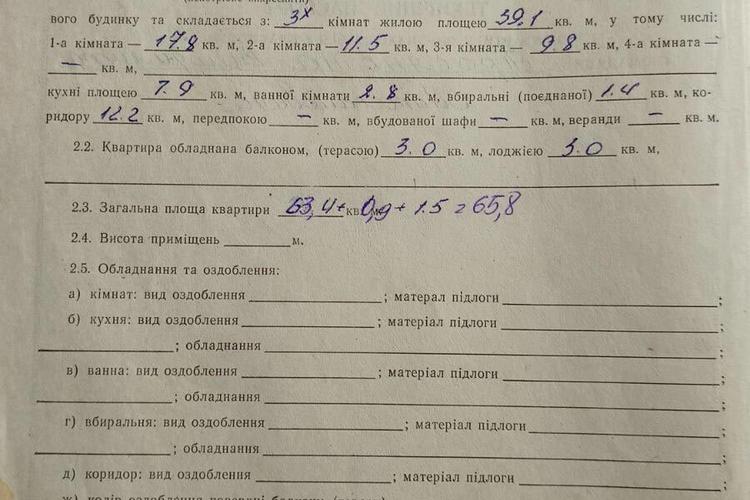 вого будинку та складається з: 3х кімнат жилою площею 39.1 кв. м, у тому числі:
1-а кімната — 17.8 кв. м, 2-а кімната — 11.5 кв. м, 3-я кімната — 9.8 кв. м, 4-а кімната —
— кв. м,
кухні площею 7.9 кв. м, ванної кімнати 2.8 кв. м, вбиральні (поєднаної) 1.4 кв. м, ко-
ридору 12.2 кв. м, передпокою — кв. м, вбудованої шафи — кв. м, веранди — кв. м.
2.2. Квартира обладнана балконом, (терасою) 3.0 кв. м, лоджією 3.0 кв. м,
2.3. Загальна площа квартири 63,4+ кв. м 0,9+ 1.5 = 65,8
2.4. Висота приміщень м.
2.5. Обладнання та оздоблення:
а) кімнат: вид оздоблення ; матерал підлоги ;
б) кухня: вид оздоблення ; матеріал підлоги
; обладнання ;
в) ванна: вид оздоблення ; матеріал підлоги
; обладнання ;
г) вбиральня: вид оздоблення ; матеріал підлоги
; обладнання ;
д) коридор: вид оздоблення ; матеріал підлоги ;